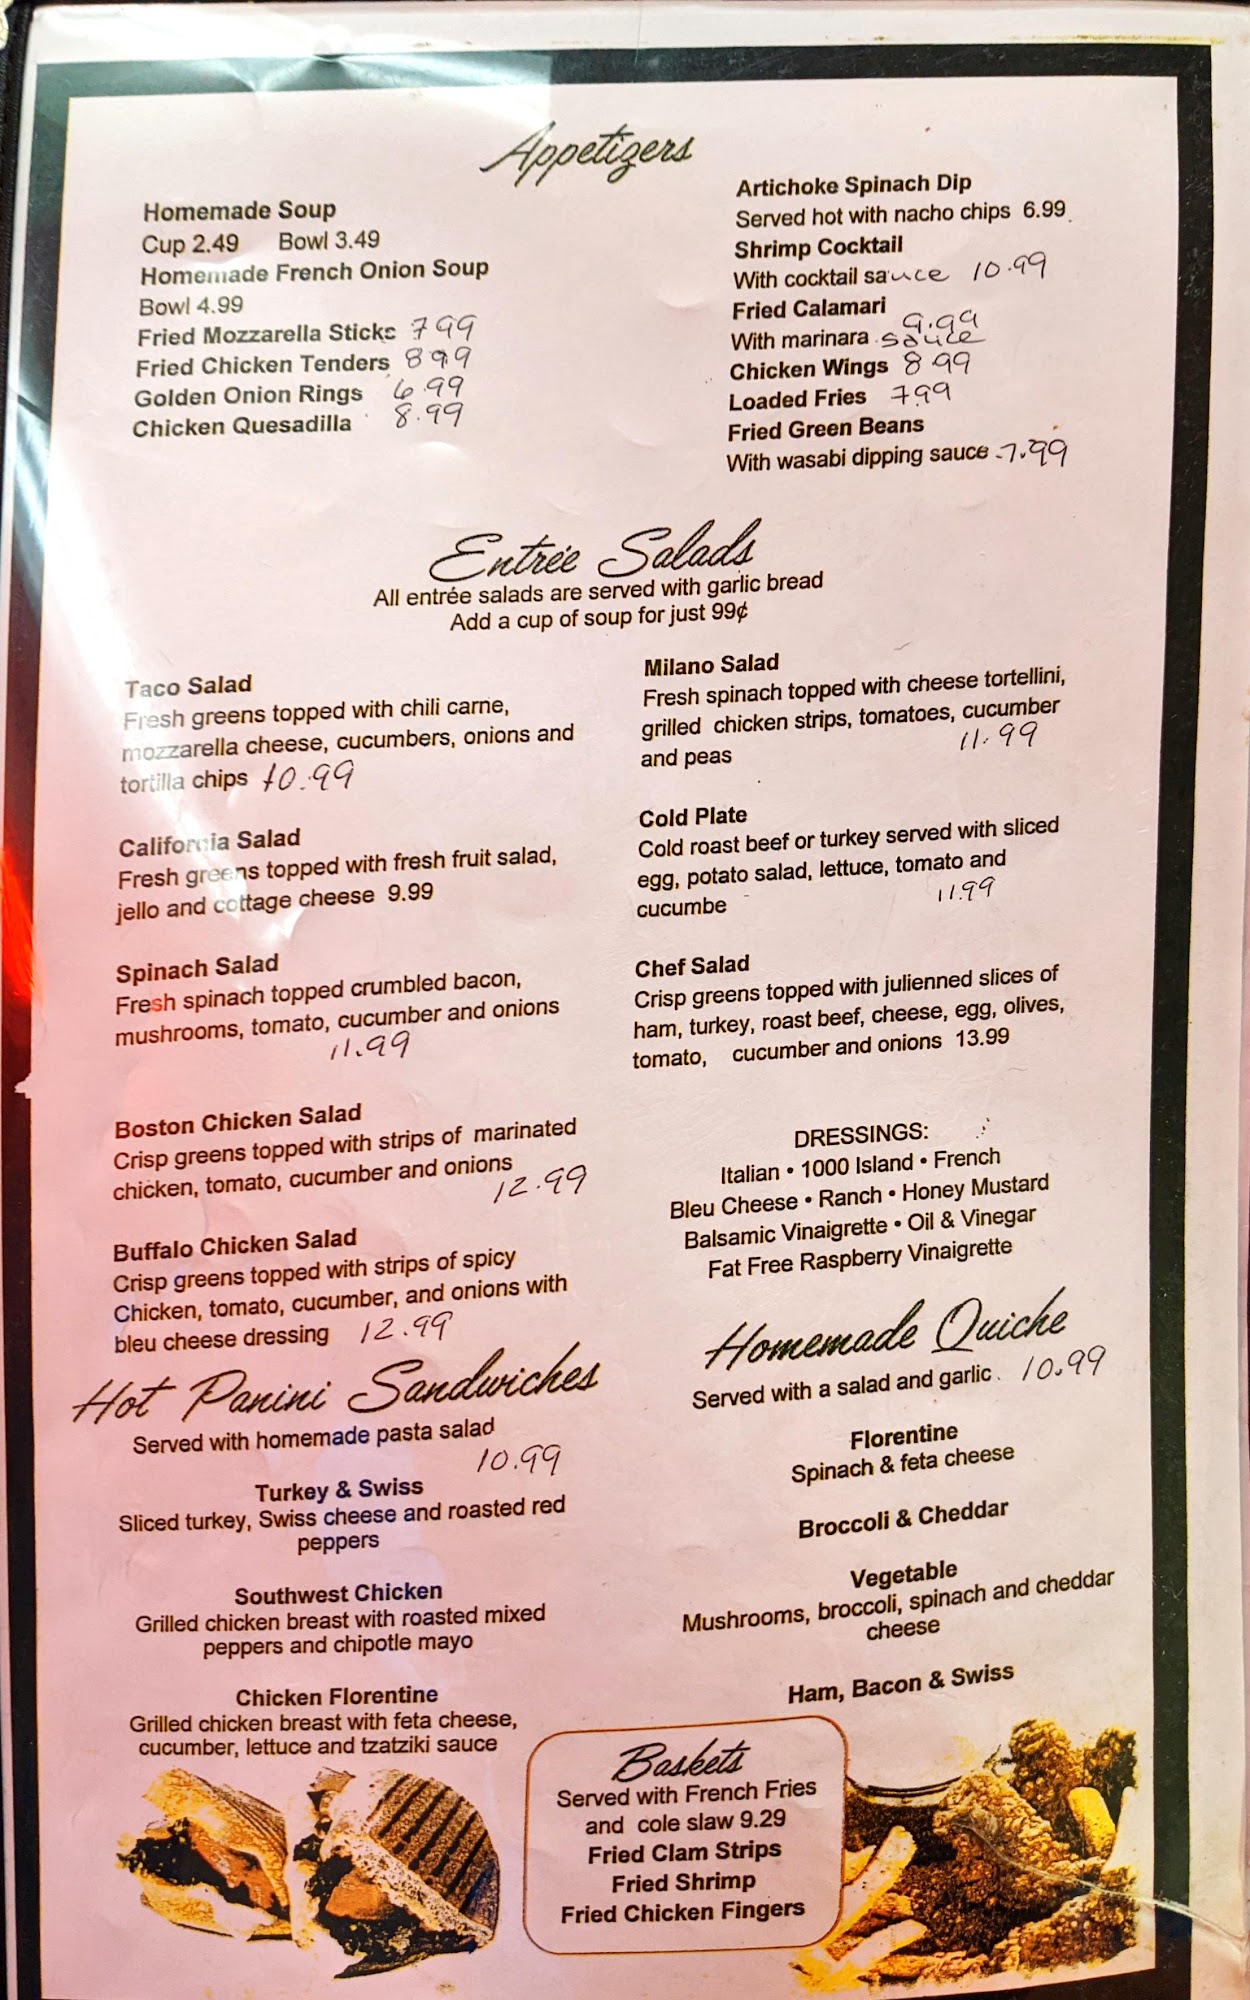 Appetizers
Homemade Soup
Cup 2.49 Bowl 3.49
Homemade French Onion Soup
Bowl 4.99
Fried Mozzarella Sticks 7 99
Fried Chicken Tenders 8 99
Golden Onion Rings 6.99
Chicken Quesadilla 8.99
Artichoke Spinach Dip
Served hot with nacho chips 6.99
Shrimp Cocktail
With cocktail sauce 10.99
Fried Calamari
9.99
With marinara sauce
Chicken Wings 8 99
Loaded Fries 7 99
Fried Green Beans
With wasabi dipping sauce 7.99
Entrée Salads
All entrée salads are served with garlic bread
Add a cup of soup for just 99¢
Taco Salad
Fresh greens topped with chili carne,
mozzarella cheese, cucumbers, onions and
tortilla chips 10.99
California Salad
Fresh greens topped with fresh fruit salad,
jello and cottage cheese 9.99
Spinach Salad
Fresh spinach topped crumbled bacon,
mushrooms, tomato, cucumber and onions
11.99
Boston Chicken Salad
Crisp greens topped with strips of marinated
chicken, tomato, cucumber and onions
12.99
Buffalo Chicken Salad
Crisp greens topped with strips of spicy
Chicken, tomato, cucumber, and onions with
bleu cheese dressing 12.99
Milano Salad
Fresh spinach topped with cheese tortellini,
grilled chicken strips, tomatoes, cucumber
and peas 11.99
Cold Plate
Cold roast beef or turkey served with sliced
egg, potato salad, lettuce, tomato and
cucumbe 11.99
Chef Salad
Crisp greens topped with julienned slices of
ham, turkey, roast beef, cheese, egg, olives,
tomato, cucumber and onions 13.99
DRESSINGS:
Italian • 1000 Island • French
Bleu Cheese • Ranch • Honey Mustard
Balsamic Vinaigrette • Oil & Vinegar
Fat Free Raspberry Vinaigrette
Hot Panini Sandwiches
Served with homemade pasta salad
10.99
Turkey & Swiss
Sliced turkey, Swiss cheese and roasted red
peppers
Southwest Chicken
Grilled chicken breast with roasted mixed
peppers and chipotle mayo
Chicken Florentine
Grilled chicken breast with feta cheese,
cucumber, lettuce and tzatziki sauce
Homemade Quiche
Served with a salad and garlic 10.99
Florentine
Spinach & feta cheese
Broccoli & Cheddar
Vegetable
Mushrooms, broccoli, spinach and cheddar
cheese
Ham, Bacon & Swiss
Baskets
Served with French Fries
and cole slaw 9.29
Fried Clam Strips
Fried Shrimp
Fried Chicken Fingers